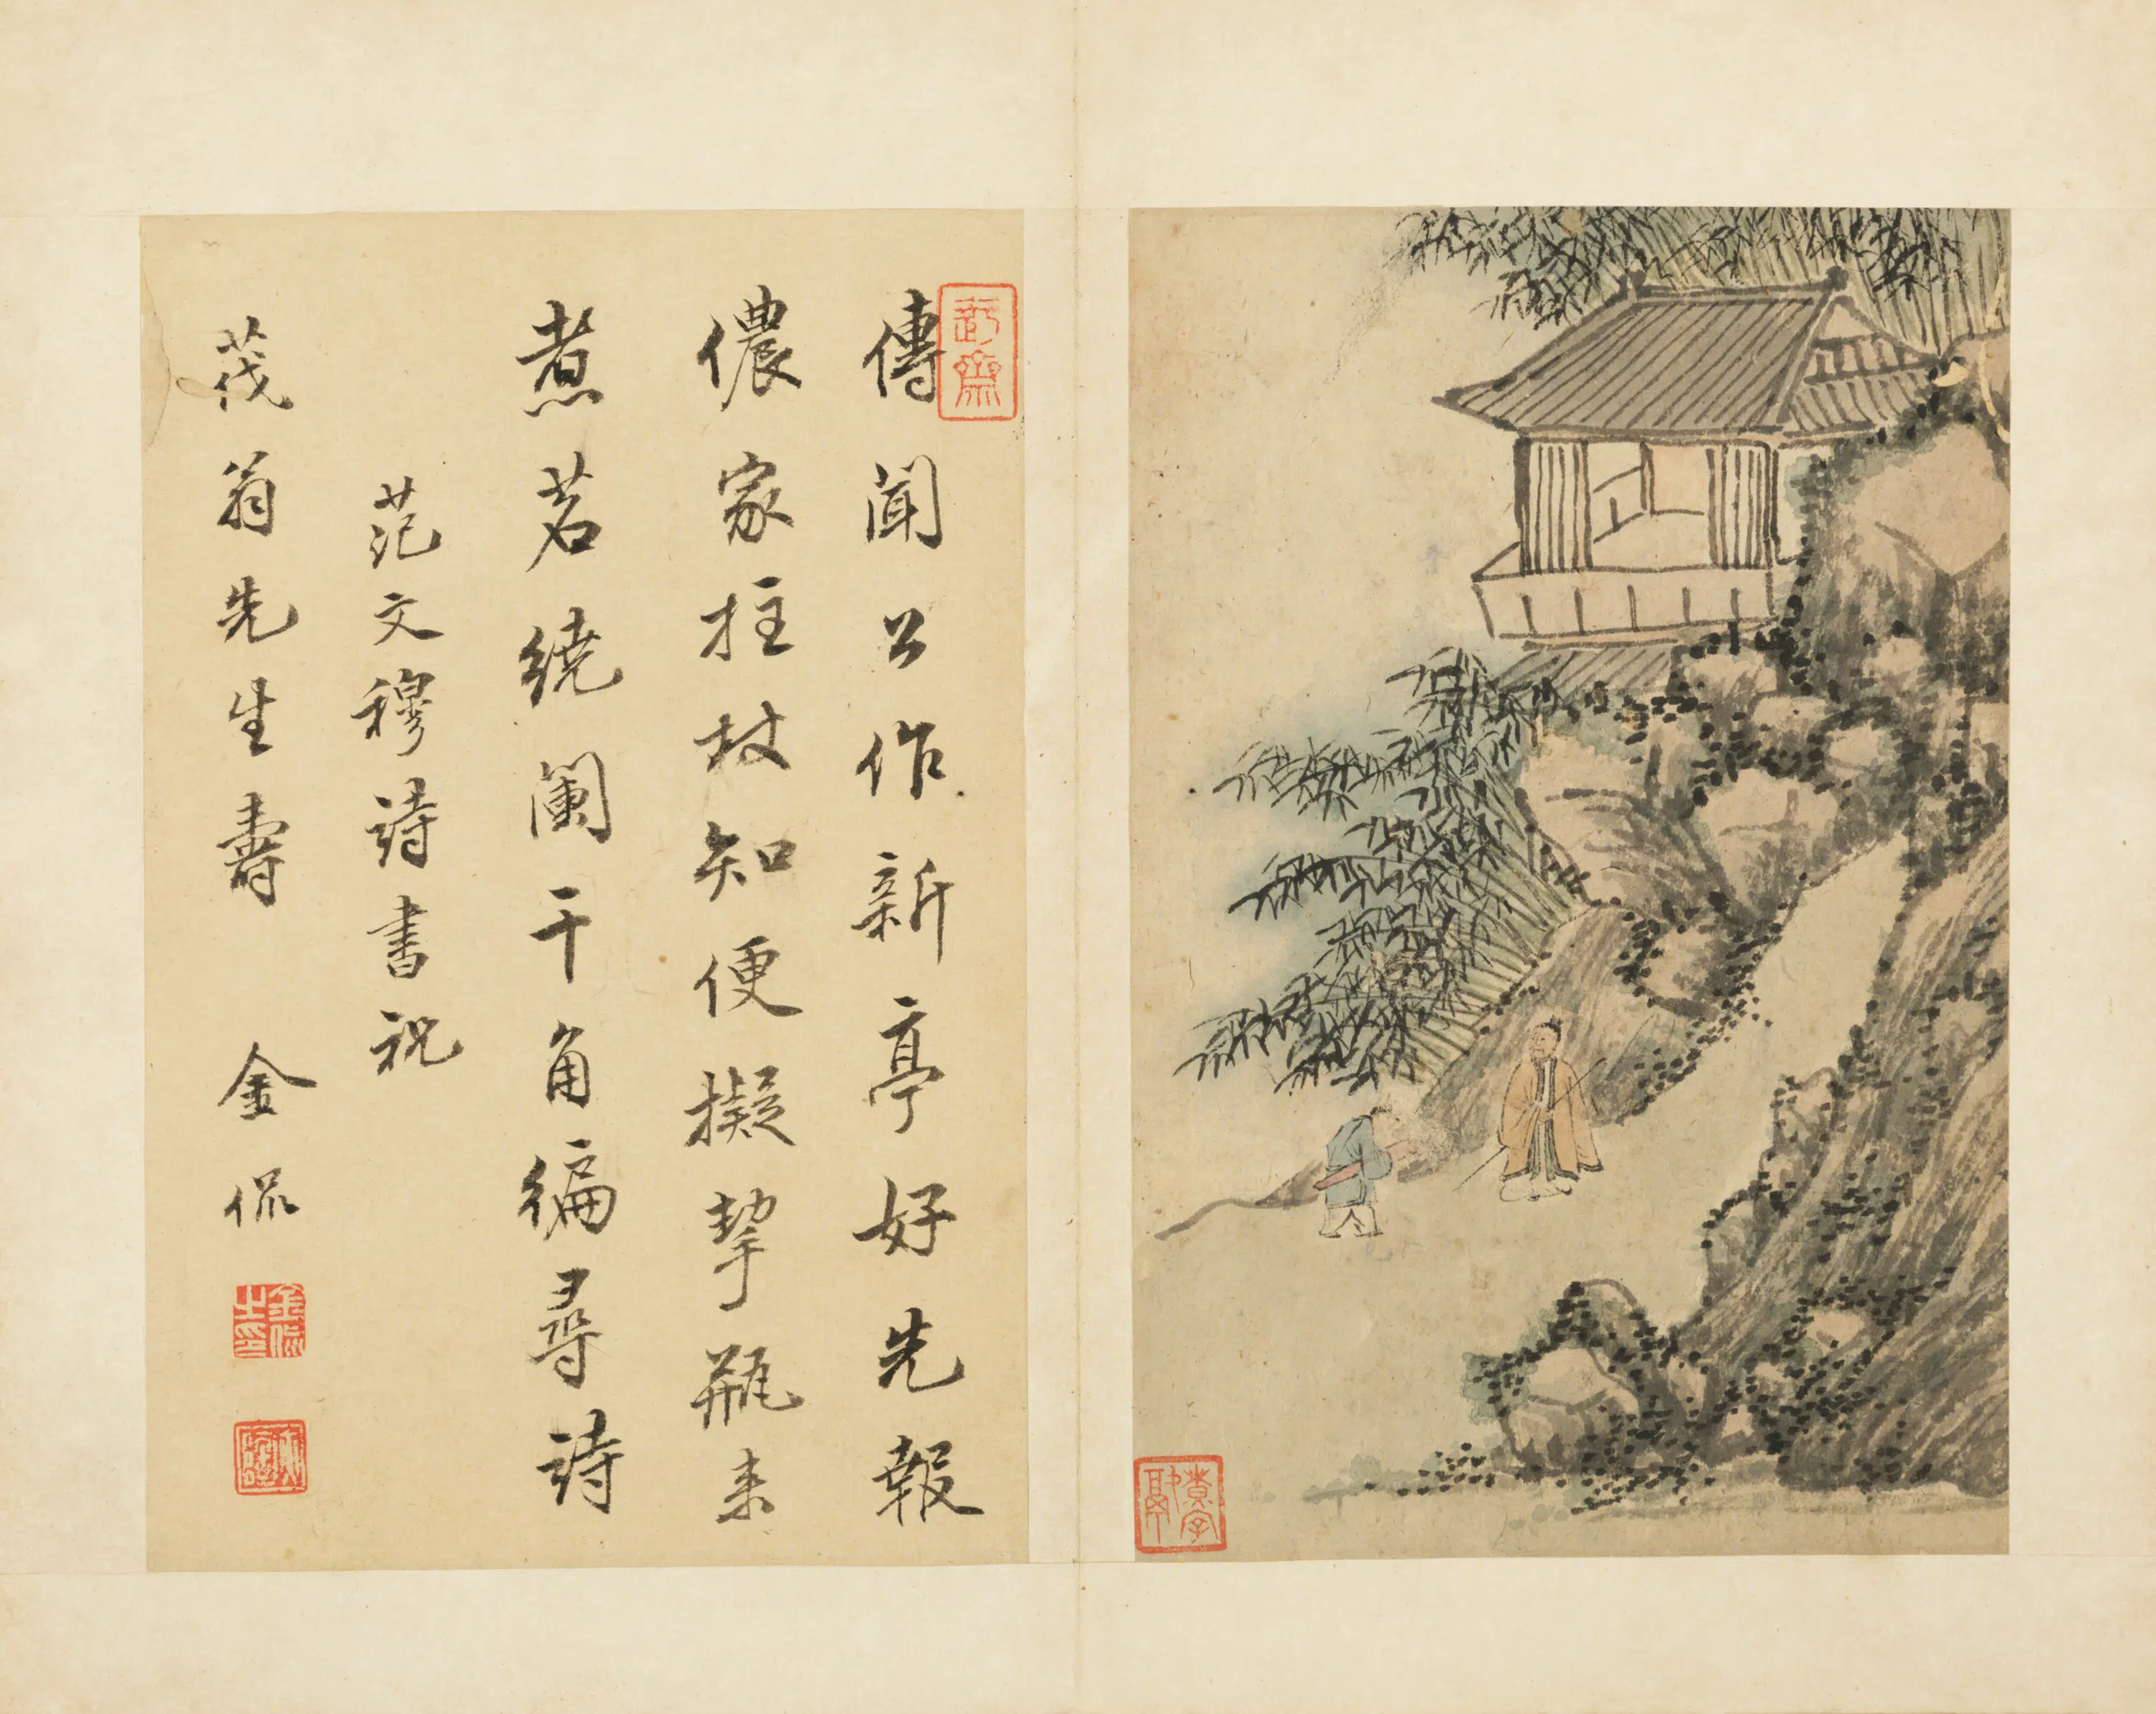 傳聞公作新亭好先報
儂家拄杖知便擬挈瓶來
煮茗繞闌干角徧尋詩
范文穆詩書祝
茂翁先生壽 金侃
金侃之印